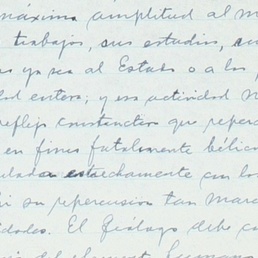 máxima amplitud al m
trabajos, sus estudios, su
as ya sea al Estado o a los p
dad entera; y esa actividad n
reflejo constructor que reperc
en fines fatalmente bélico
ulada estrechamente con los
su repercusión tan marc
idades. El filólogo debe co